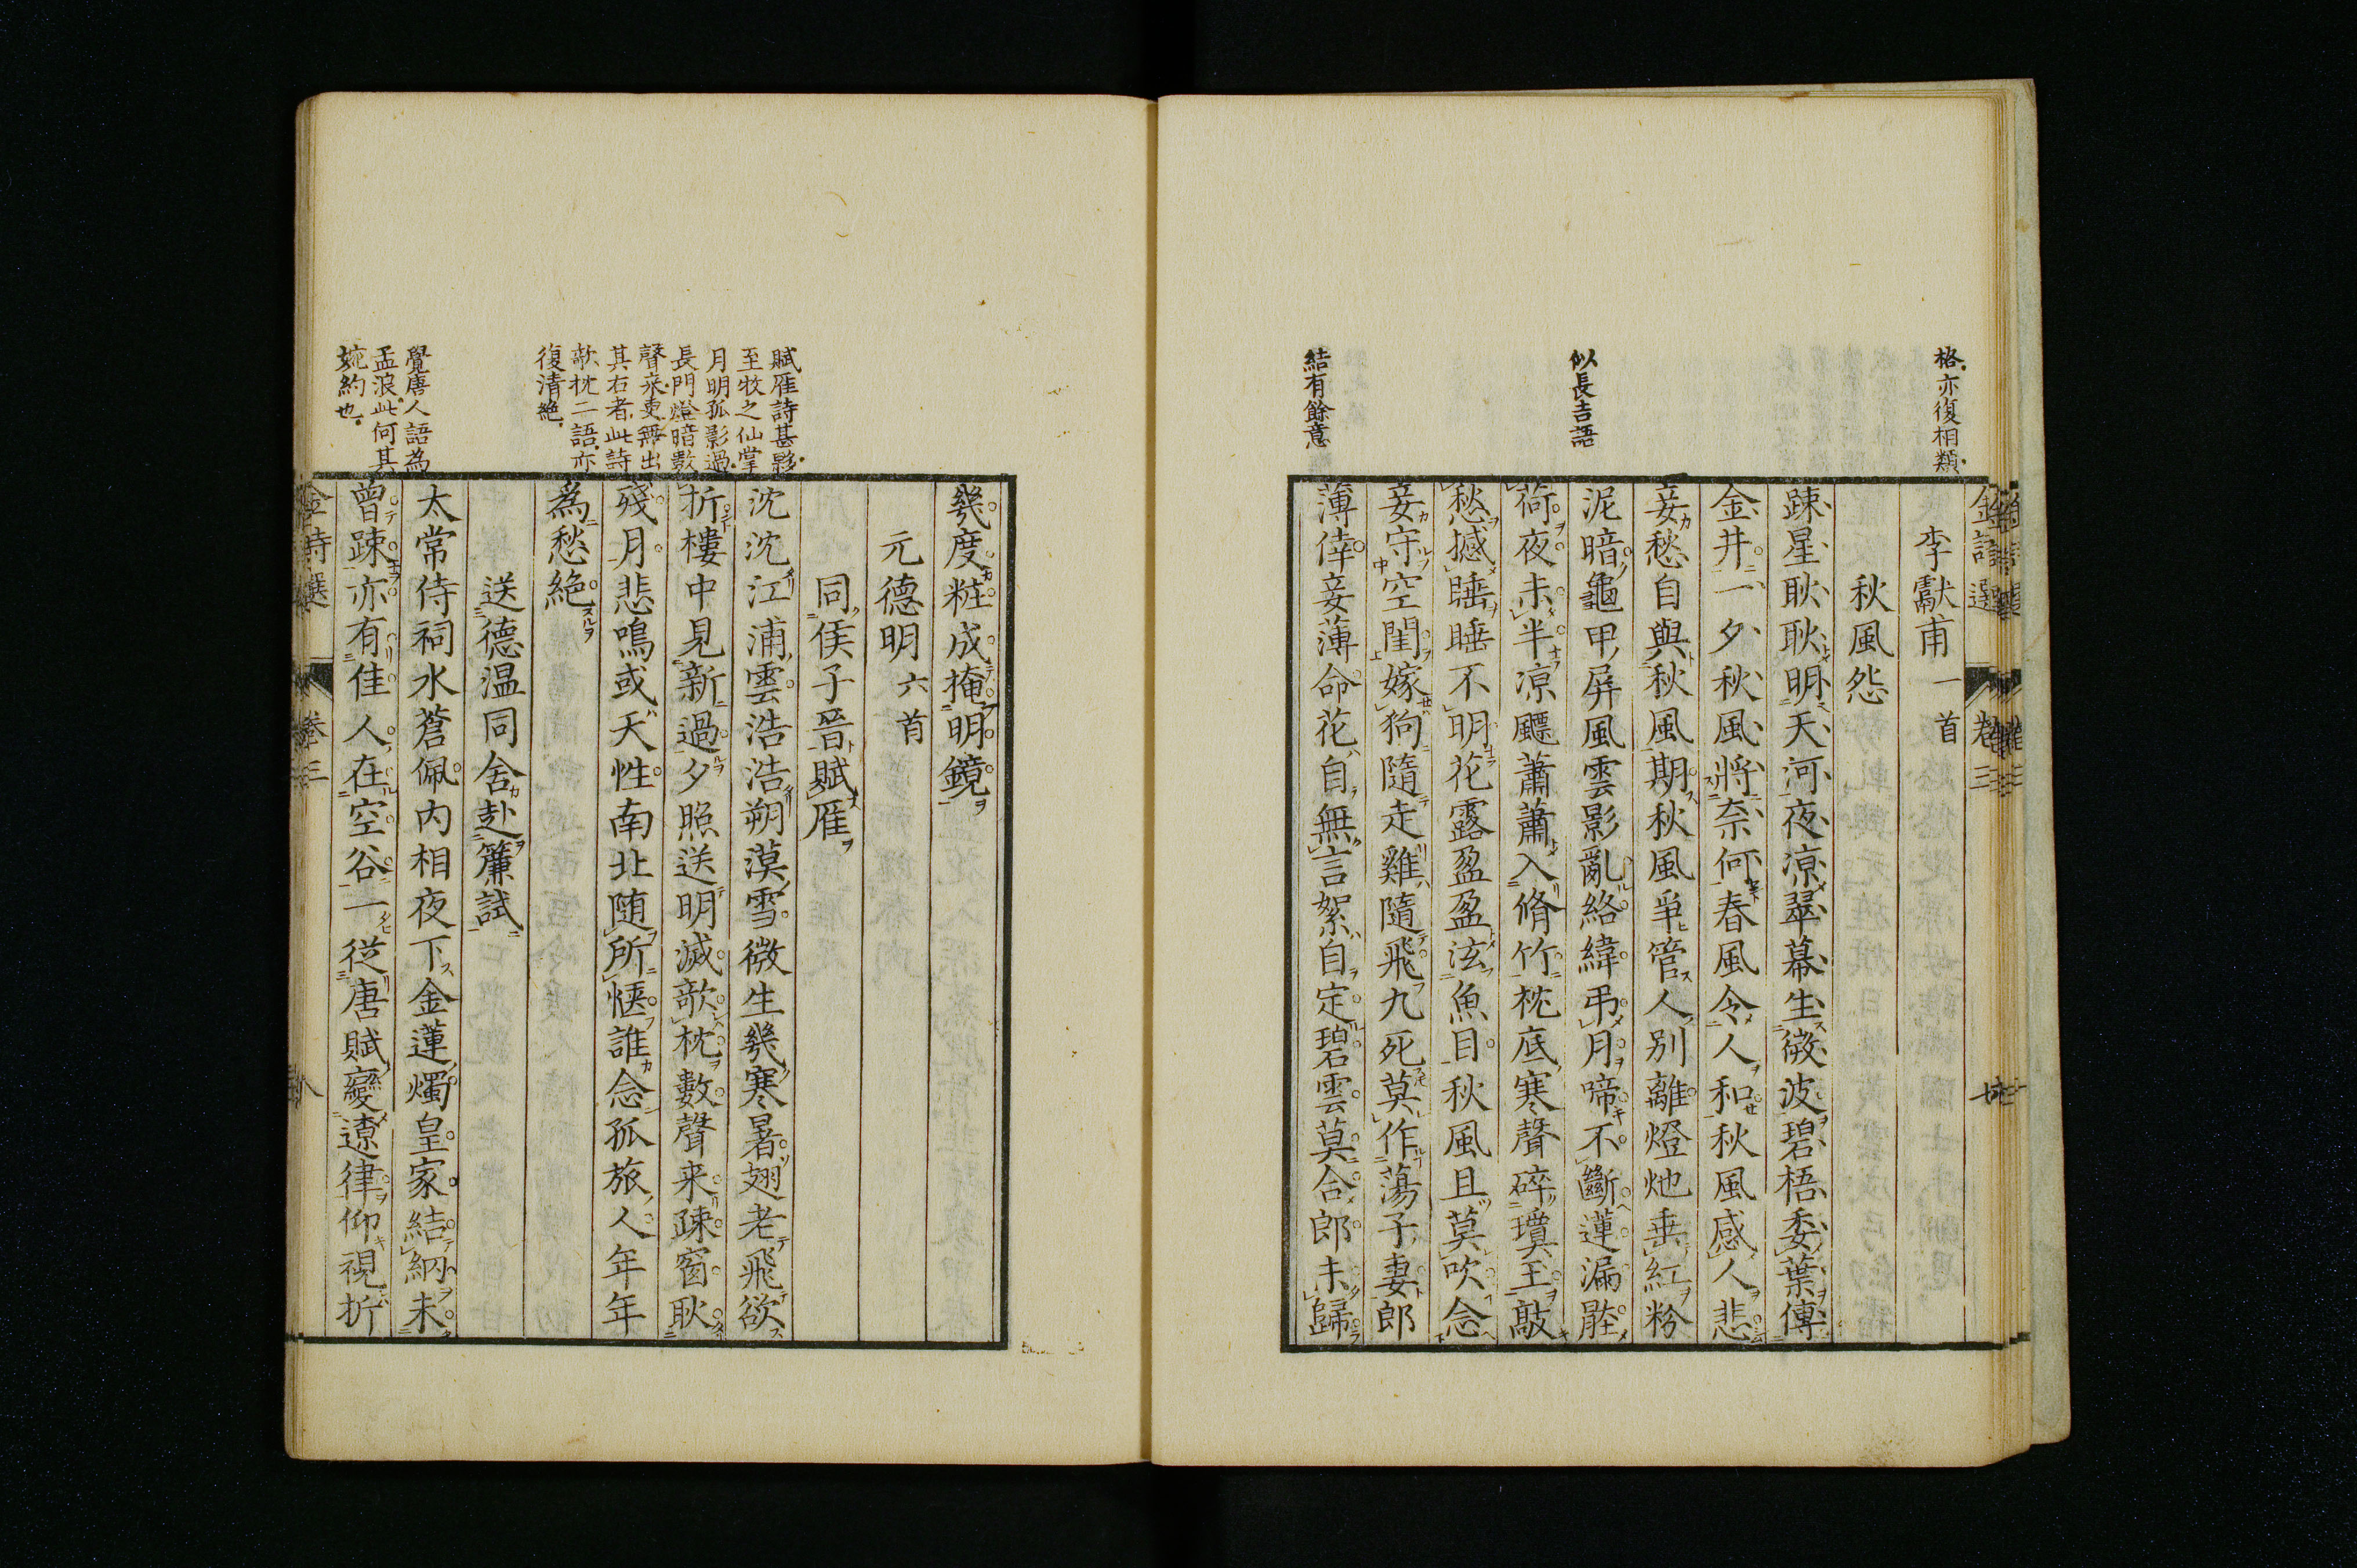 格亦復相類
似長吉語
結有餘意
李獻甫一首
秋風怨
踈星耿耿明天河夜凉翠幕生微波碧梧委葉傳
金井一夕秋風將奈何春風令人和秋風感人悲
妾愁自與秋風期秋風爭管人別離燈灺垂紅粉
泥暗龜甲屏風雲影亂絡緯弔月啼不斷蓮漏
荷夜未半凉飈蕭蕭入脩竹枕底寒聲碎瓊玉敲
愁撼睡睡不明花露盈盈泫魚目秋風且莫吹念
妾守空閨嫁狗隨走雞隨飛九死莫作蕩子妻郎
薄倖妾薄命花自無言絮自定碧雲莫合郎未歸
賦雁詩甚夥
至牧之仙掌
月明孤影過
長門燈暗數
聲來更無出
其右者此詩
欹枕二語亦
復清絶
覺唐人語為
孟浪此何其
婉約也
幾度粧成掩明鏡
元德明六首
同侯子晉賦雁
沈沈江浦雲浩浩朔漠雪微生幾寒暑翅老飛欲
折樓中見新過夕照送明滅欹枕數聲来疎窗耿
殘月悲鳴或天性南北随所愜誰念孤旅人年年
為愁絶
送德温同舍赴簾試
太常侍祠水蒼佩内相夜下金蓮燭皇家結網未
曾踈亦有佳人在空谷一從唐賦變遼律仰視折
金詩選
卷三